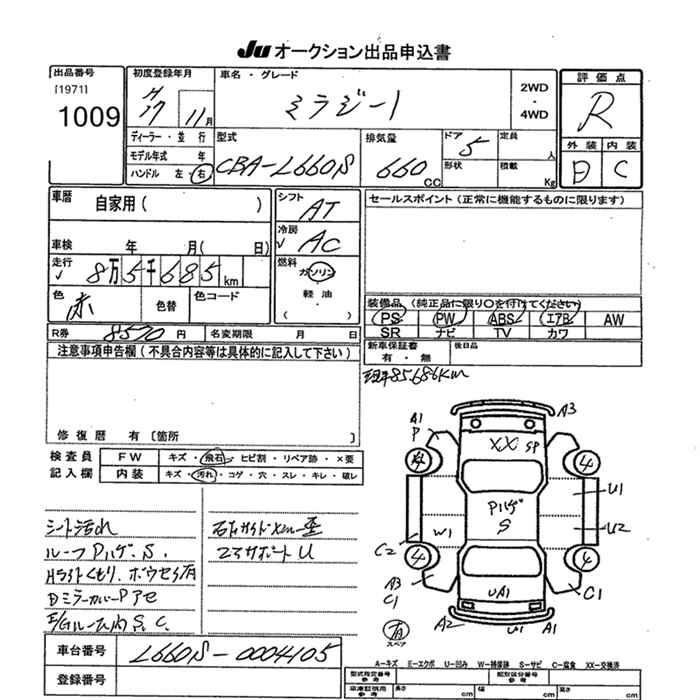 Ju オークション出品申込書
出品番号
[1971]
1009
初度登録年月
H17 11月
車名・グレード
ミラジーノ
2WD
・
4WD
評価点
R
外装 内装
D C
ディーラー・並行
モデル年式 年
ハンドル 左・右
型式
CBA-L660S
排気量
660 CC
ドア 5
形状
定員 人
積載 Kg
車歴
自家用( )
車検 年 月( 日)
走行
8万5千685km
色
赤
色替
色コード
シフト
AT
冷房
AC
燃料
ガソリン
・
軽油
・
( )
セールスポイント(正常に機能するものに限ります)
装備品 (純正品に限り○を付けてください)
PS PW ABS エアB AW
SR ナビ TV カワ
新車保証書
有・無
後日品
R券 8570 円
名変期限 月 日
注意事項申告欄(不具合内容等は具体的に記入して下さい)
修復歴 有〔箇所 〕
現車85686Km
検査員
記入欄
FW キズ・飛石・ヒビ割・リペア跡・×要
内装 キズ・汚れ・コゲ・穴・スレ・キレ・破レ
シート汚れ
ルーフPハゲ.S.
Hライトくもり.ボウセイ有
DミラーカバーPアセ
E/Gルーム内S.C.
右Fサイドメンバー歪
コアサポートU
A1
P
A3
XX SP
4
4
U1
Pハゲ
S
W1
U2
C2
4
4
A3
C1
UA1
C1
A2
U1 A1
有
スペア
車台番号
L660S-0004105
登録番号
A-キズ E-エクボ U-凹み W-補修跡 S-サビ C-腐食 XX-交換済
型式指定番号
参考
類別区分番号
参考
車庫証明用
参考
長さ cm
幅 cm
高さ cm